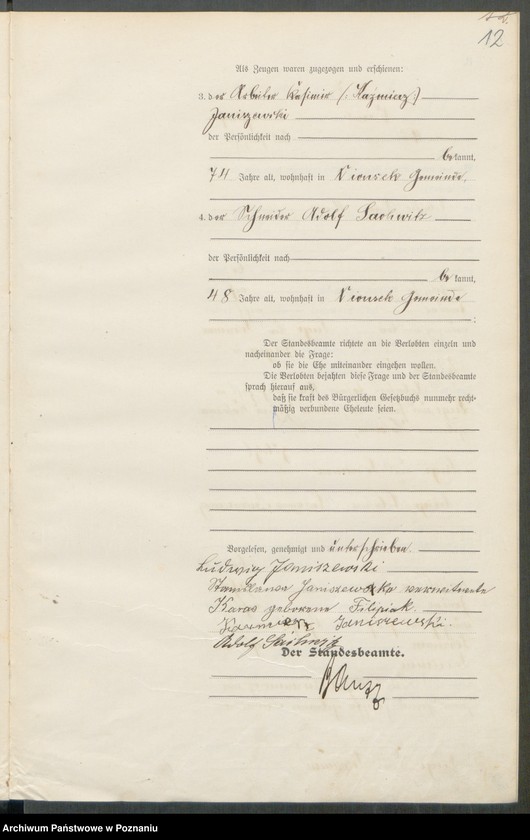 12
Als Zeugen waren zugezogen und erschienen:
3. der Arbeiter Kasimir (: Kaźmierz :)
Janiszewski
der Persönlichkeit nach
bekannt,
74 Jahre alt, wohnhaft in Gemeinde,
4. der Schneider Adolf Sachwitz
der Persönlichkeit nach
bekannt,
48 Jahre alt, wohnhaft in Gemeinde
;
Der Standesbeamte richtete an die Verlobten einzeln und
nacheinander die Frage:
ob sie die Ehe miteinander eingehen wollen.
Die Verlobten bejahten diese Frage und der Standesbeamte
sprach hierauf aus,
daß sie kraft des Bürgerlichen Gesetzbuchs nunmehr recht-
mäßig verbundene Eheleute seien.
Vorgelesen, genehmigt und unterschrieben.
Ludwig Janiszewski
Stanislawa Janiszewska verwitwete
Karas geborene Filipiak
Kazmierz Janiszewski.
Adolf
Der Standesbeamte.
Archiwum Państwowe w Poznaniu